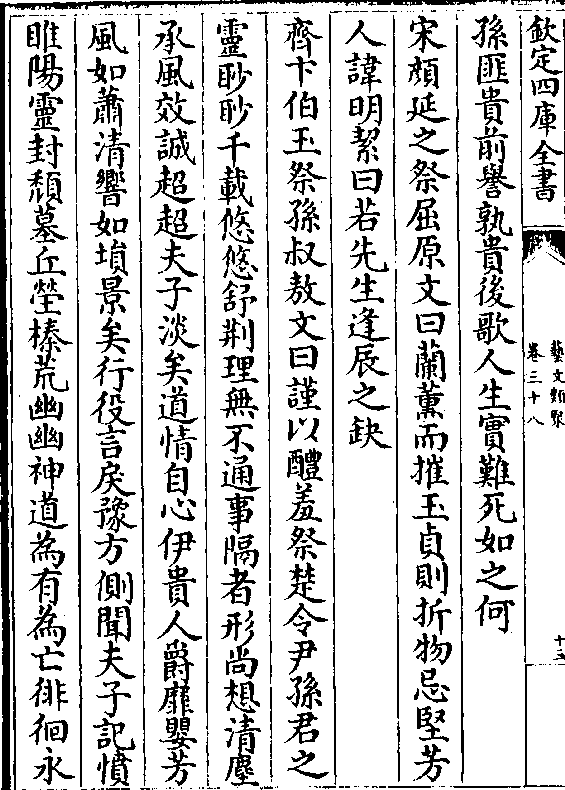 欽定四庫全書
藝文類聚
卷三十八
十五
孫匪貴前譽孰貴後歌人生實難死如之何
宋顏延之祭屈原文曰蘭薰而摧玉貞則折物忌堅芳
人諱明絜曰若先生逢辰之缺
齊卞伯玉祭孫叔敖文曰謹以醴羞祭楚令尹孫君之
靈眇眇千載悠悠舒荆理無不通事隔者形尚想清塵
承風效誠超超夫子淡矣道情自心伊貴人爵靡嬰芳
風如蕭清響如塤景矣行役言戾豫方側聞夫子記憤
睢陽靈封頽墓丘塋榛荒幽幽神道為有為亡徘徊永